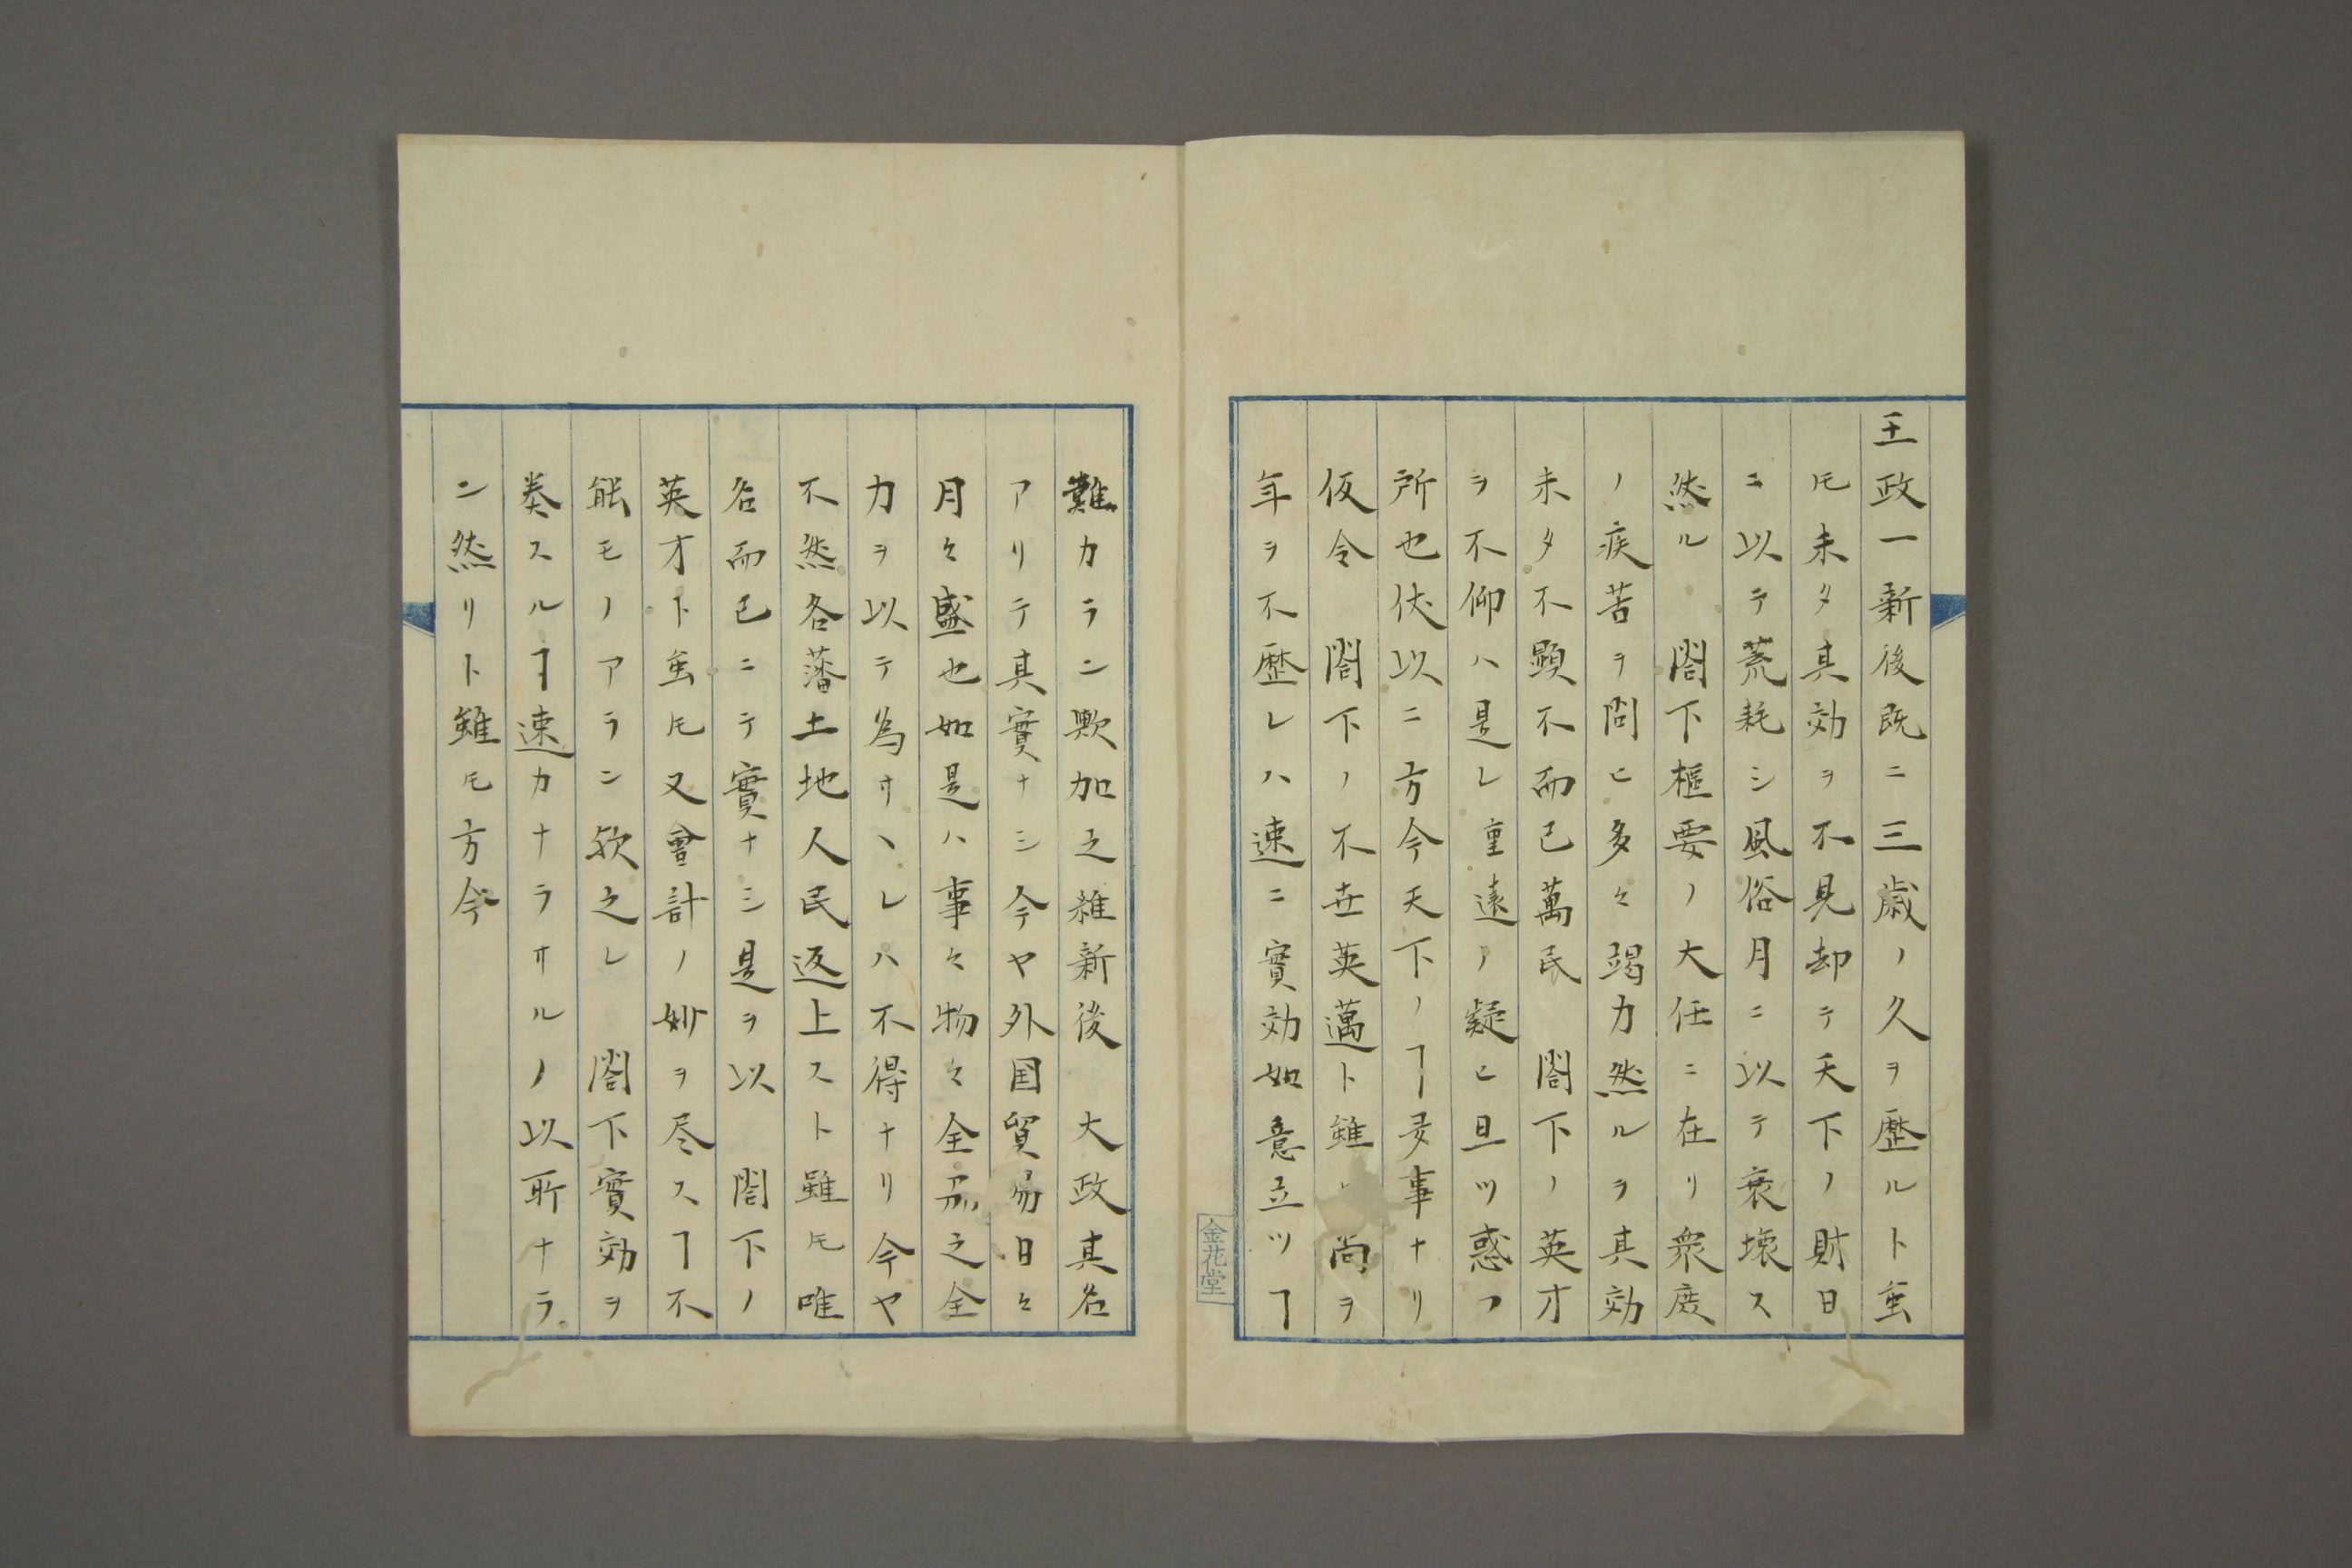 王政一新後既ニ三歳ノ久ヲ歴ルト虽
𪜈未タ其効ヲ不見却テ天下ノ財日
ニ以テ荒耗シ風俗月ニ以テ衰壊ス
然ル　閤下樞要ノ大任ニ在リ衆庶
ノ疾苦ヲ問ヒ多々竭力然ルヲ其効
未タ不顕不而已萬民　閤下ノ英才
ヲ不仰ハ是レ重遠ノ疑ヒ且ツ惑フ
所也伏以ニ方今天下ノヿ多事ナリ
仮令　閤下ノ不世英邁ト雖尚ヲ
年ヲ不歴レハ速ニ實効如意立ツヿ
難カラン歟加之維新後　大政其名
アリテ其實ナシ今ヤ外国貿易日々
月々盛也如是ハ事々物々全届之全
力ヲ以テ為サヽレハ不得ナリ今ヤ
不然各藩土地人民返上スト雖𪜈唯
名而已ニテ實ナシ是ヲ以　閤下ノ
英才ト虽𪜈又會計ノ妙ヲ尽スヿ不
能モノアラン欤之レ　閤下實効ヲ
奏スルヿ速カナラサルノ以所ナラ
ン然リト雖𪜈方今
金花堂